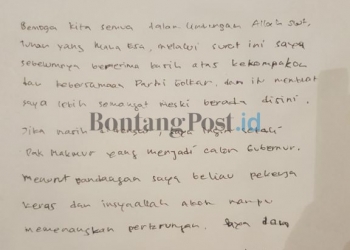 Semoga kita semua dalam lindungan Allah SWT,
Tuhan yang Maha Esa, melalui surat ini saya
sebelumnya berterima kasih atas kekompakan
dan kebersamaan Partai Golkar, dan itu membuat
saya lebih semangat meski berada disini.
Jika masih saya ingin sekali
BontangPost.id
Pak Makmur yang menjadi calon Gubernur.
Menurut pandangan saya beliau pekerja
keras dan insyaallah akan mampu
memenangkan pertarungan. Saya dan